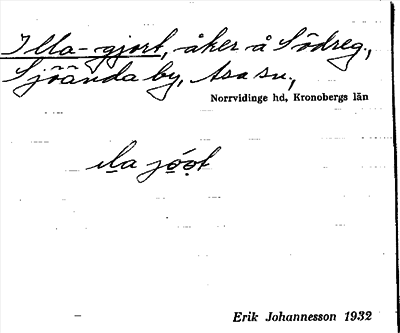 Illa-gjort, åker å Södreg.,
Sjöända by, Asa sn.,
Norrvidinge hd, Kronobergs län
ɩla jo̯o̯t
Erik Johannesson 1932